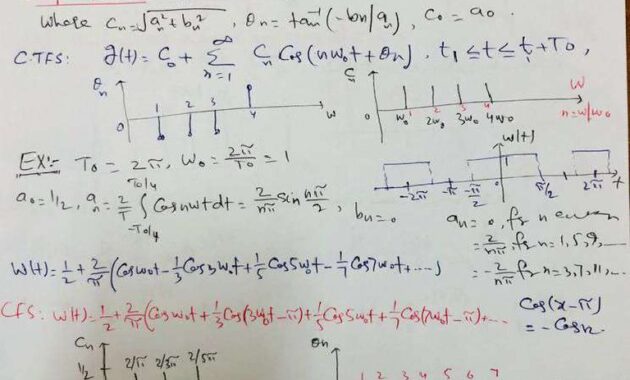 where Cn = √(an² + bn²), θn = tan⁻¹(-bn/an), C0 = a0.
C.TFS: g(t) = C0 + ∞∑n=1 Cn Cos(nω0t + θn), t1 ≤ t ≤ t1 + T0,
θn 0 1 2 3 4 ω
Cn 0 ω0 2ω0 3ω0 4ω0 ω
1 2 3 4 n = ω/ω0
Ex:- T0 = 2π, ω0 = 2π/T0 = 1
w(t) -2π -π -π/2 π/2 2π t
a0 = 1/2, an = 2/T ∫-T0/4^T0/4 Cos nωt dt = 2/nπ sin nπ/2, bn = 0
an = 0, fr n even
= 2/nπ, fr n = 1, 5, 9, ...
= -2/nπ fr n = 3, 7, 11, ...
W(t) = 1/2 + 2/π (Cos ω0t - 1/3 Cos 3ω0t + 1/5 Cos 5ω0t - 1/7 Cos 7ω0t + ....)
Cos(x-π) = -Cos x
CFS: W(t) = 1/2 + 2/π (Cos ω0t + 1/3 Cos(3ω0t - π) + 1/5 Cos 5ω0t + 1/7 Cos(7ω0t - π) + ...
Cn 1/2 2/π 2/3π 2/5π
θn 0 1 2 3 4 5 6 7